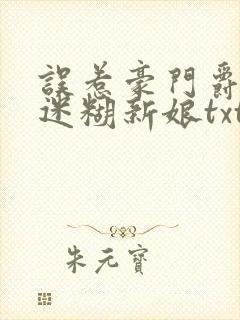 誤惹豪門爵
迷糊新娘txt
朱元寶